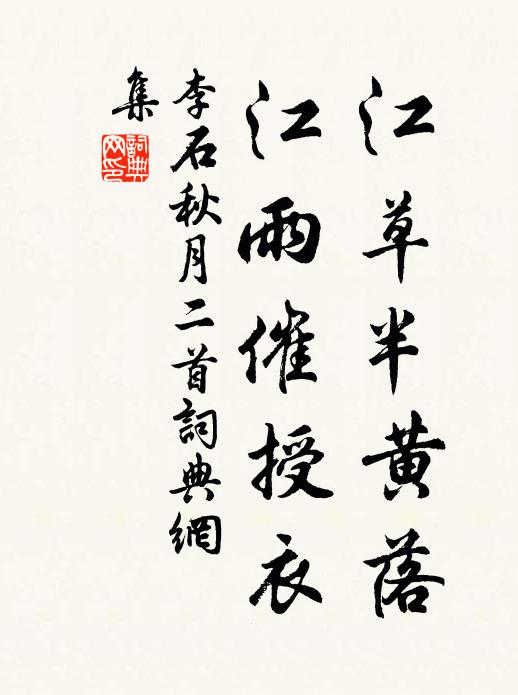 江草半黄落
江雨催授衣
李石秋月二首詞典網
集
詞典
网印